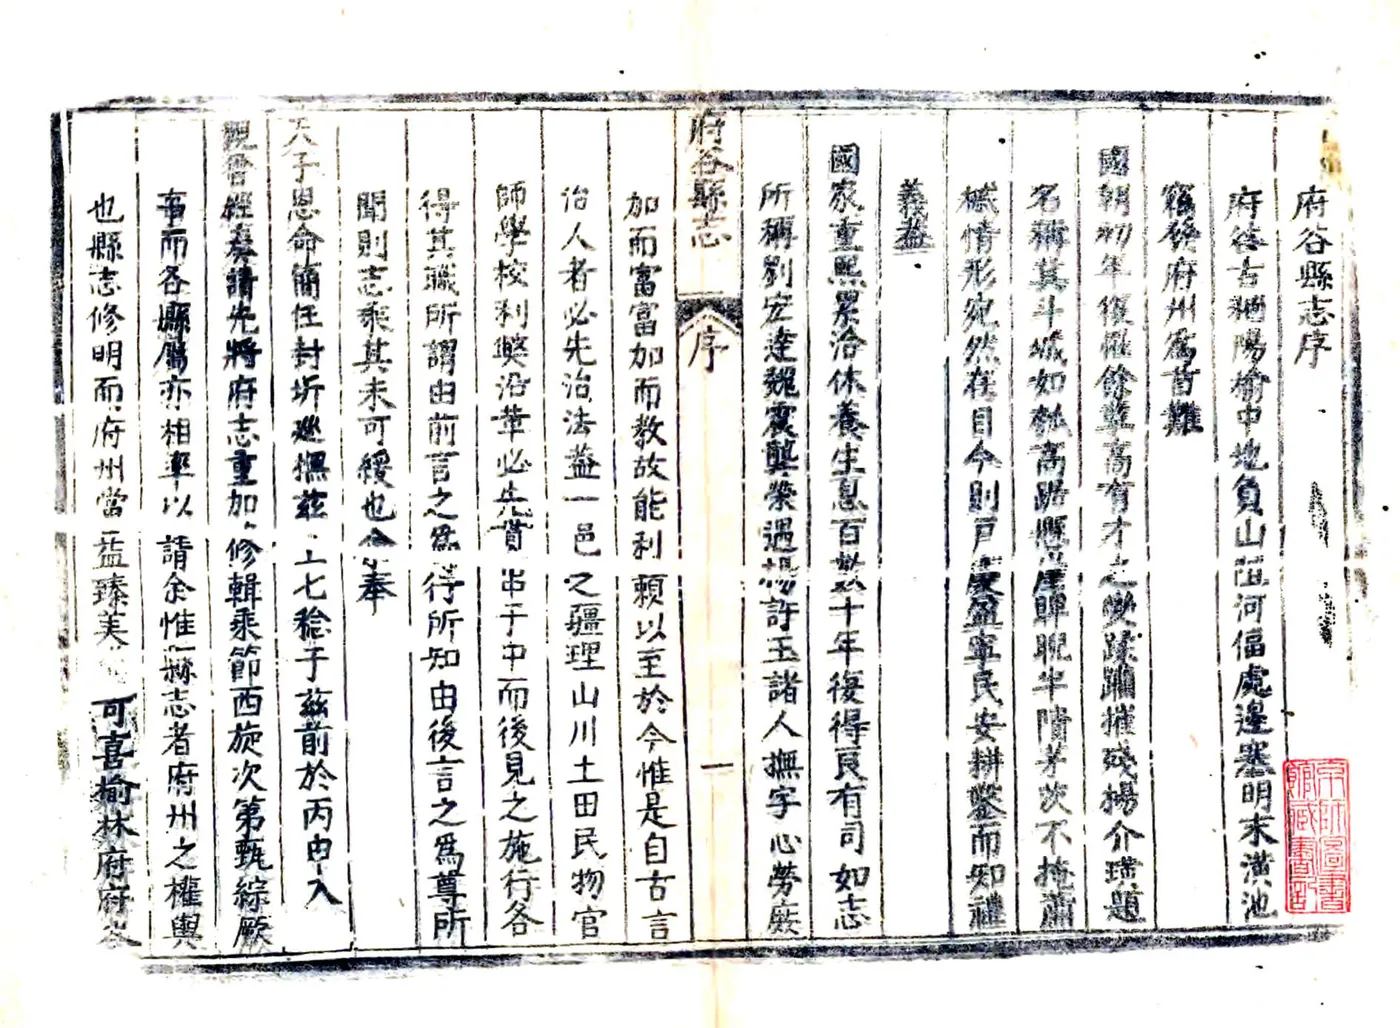 府谷縣志序
府谷古稱陽榆中地負山阻河偪處邊塞明末潢池
竊發府州為首難
國朝初年復罹餘孽高有才之變蹂躪摧殘楊介璜題
名稱其斗城如瓠高踞懸崖睥睨半隤茅茨不掩蕭
槭情形宛然在目今則戶慶盈寧民安耕鑿而知禮
義蓋
國家重熙累洽休養生息百數十年復得良有司如志
所稱劉宏逵魏震龔榮遇楊許玉諸人撫字心勞厥
府谷縣志
序
一
加而富富加而教故能利賴以至於今惟是自古言
治人者必先治法蓋一邑之疆理山川土田民物官
師學校利弊沿革必先貫串于中而後見之施行各
得其職所謂由前言之為行所知由後言之為尊所
聞則志乘其未可緩也余奉
天子恩命簡任封圻巡撫茲土七稔于茲前於丙申入
覲曾經奏請先將府志重加修輯乘節西旋次第甄綜厥
事而各縣屬亦相率以請余惟縣志者府州之權輿
也縣志修明而府州當益臻美 可喜榆林府府谷
京師圖書館藏書記